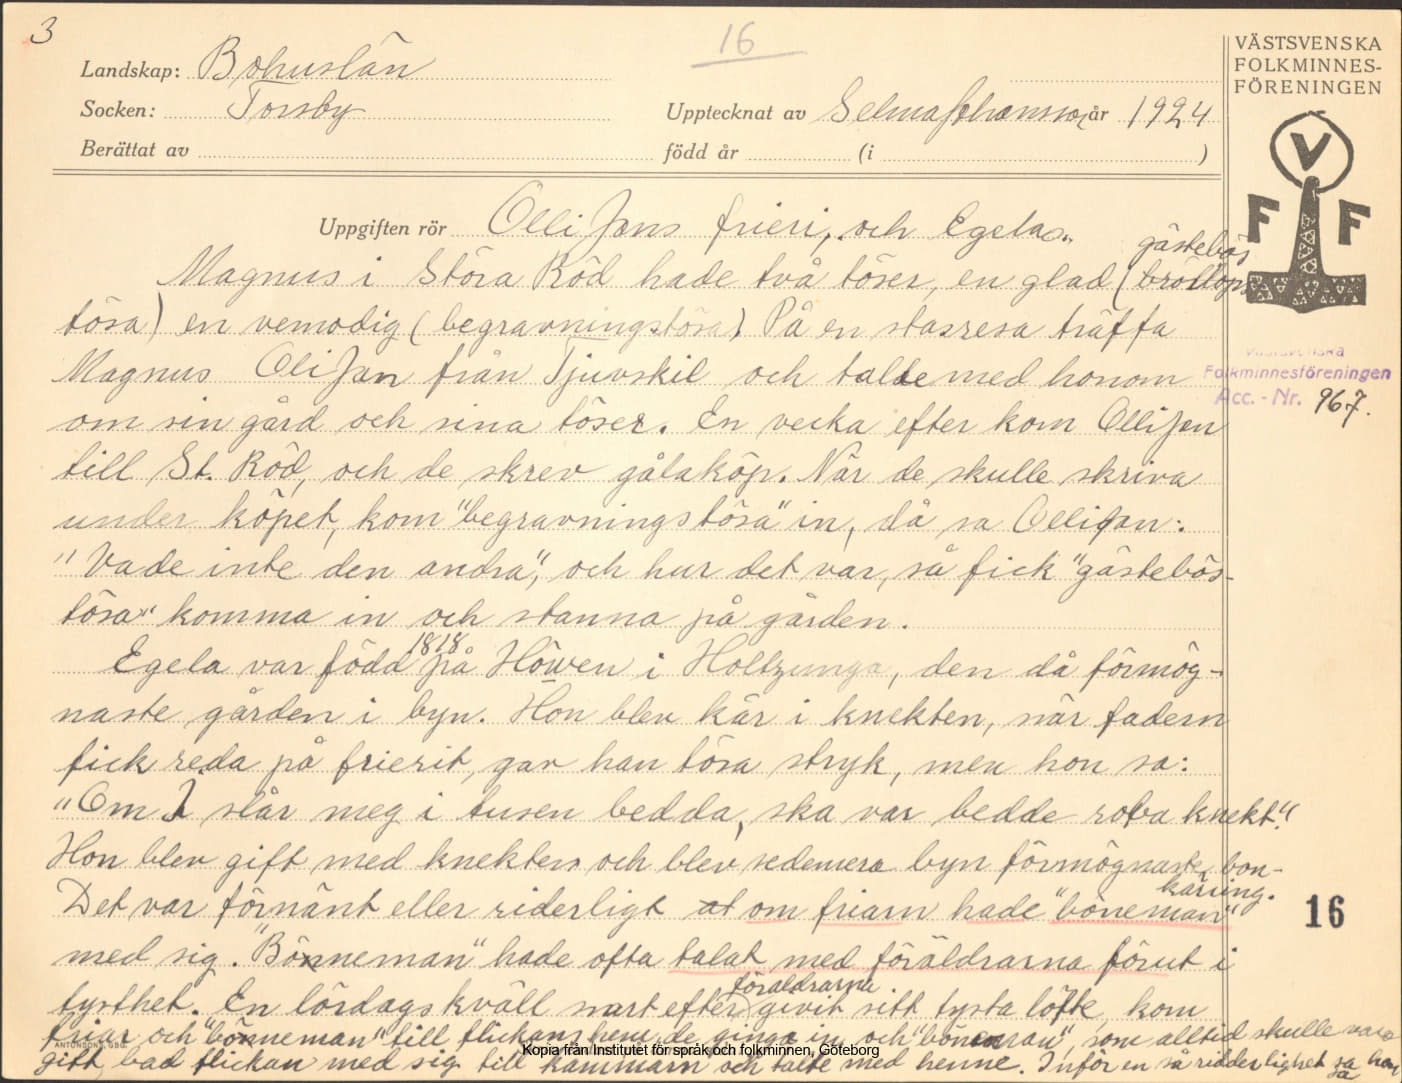 3
16
Landskap: Bohuslän
Socken: Torsby
Upptecknat av Selma Johansson år 1924
Berättat av född år (i )
VÄSTSVENSKA
FOLKMINNES-
FÖRENINGEN
V
F F
Uppgiften rör Olli Jans frieri, och Egelas.
Magnus i Störa Röd hade två töser, en glad (bröllops gästebös
tösa) en vemodig (begravningstösa) På en stasresa träffa
Magnus Oli Jan från Tjuvskil och talte med honom
Västsvenska
Folkminnesföreningen
Acc. - Nr. 967.
om sin gård och sina töser. En vecka efter kom Olli Jan
till St. Röd, och de skrev gålaköp. När de skulle skriva
under köpet, kom "begravningstösa" in, då sa Ollijan:
"Vade inte den andra", och hur det var, så fick "gästebös-
tösa" komma in och stanna på gården.
Egela var född 1818 på Höwen i Holtzunga, den då förmög-
naste gården i byn. Hon blev kär i knekten, när fadern
fick reda på frierit, gav han tösa stryk, men hon sa:
"Om I slår meg i tusen bedda, ska var bedde ropa knekt".
Hon blev gift med knekten och blev sedemera byn förmögnaste bon-
käring.
Det var förnänt eller riderligt at om friarn hade "böneman"
med sig. "Bönneman" hade ofta talat med föräldrarna förut i
tysthet. En lördagskväll snart efter föräldrarna givit sitt tysta löfte, kom
friar och "bönneman" till flickans hem, de gingo in och "böneman", som alltid skulle vara
gift, bad flickan med sig till kammarn och talte med henne. Inför en så ridderlighet sa hon
sa
16
ANTONSONS, GBG
Kopia från Institutet för språk och folkminnen, Göteborg